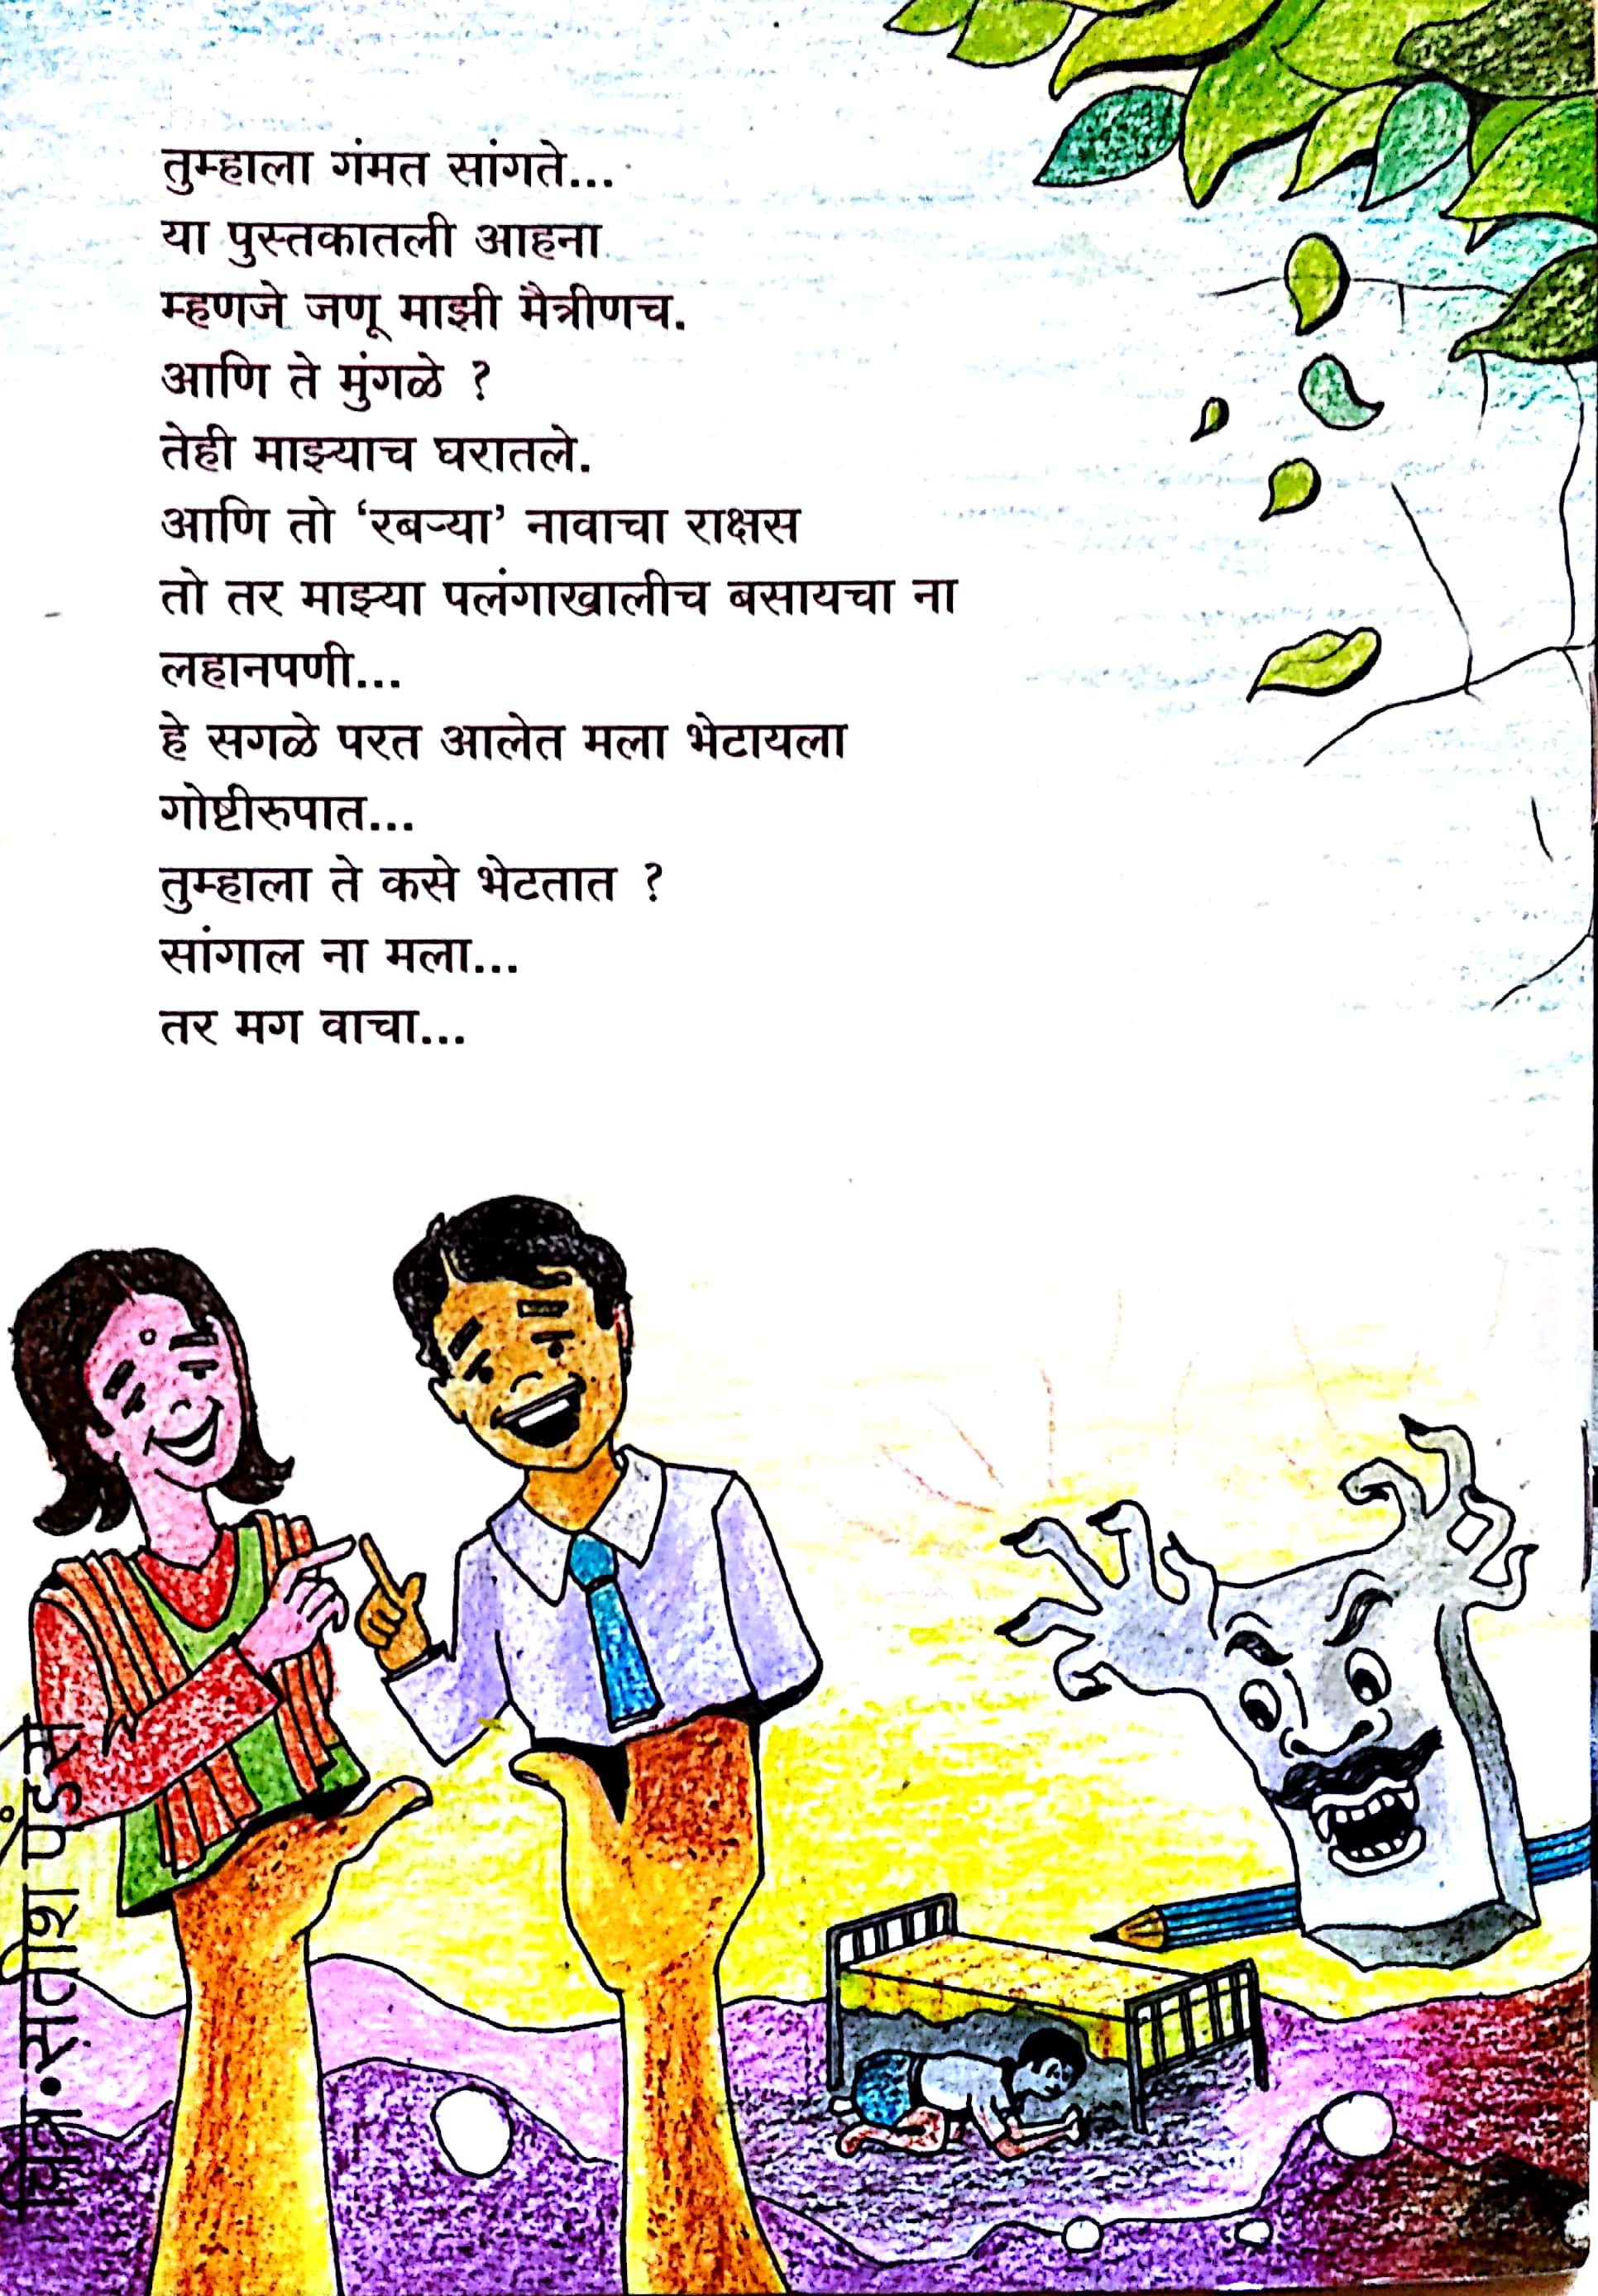 तुम्हाला गंमत सांगते...
या पुस्तकातली आहना
म्हणजे जणू माझी मैत्रीणच.
आणि ते मुंगळे ?
तेही माझ्याच घरातले.
आणि तो ‘रबऱ्या’ नावाचा राक्षस
तो तर माझ्या पलंगाखालीच बसायचा ना
लहानपणी...
हे सगळे परत आलेत मला भेटायला
गोष्टीरुपात...
तुम्हाला ते कसे भेटतात ?
सांगाल ना मला...
तर मग वाचा...
चित्र. सतीश